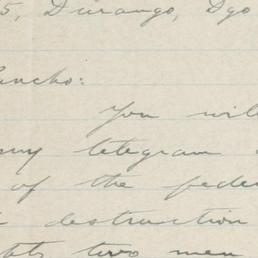 5, Durango, Dgo
Pancho:
You will
my telegram
of the fede
destruction
two men